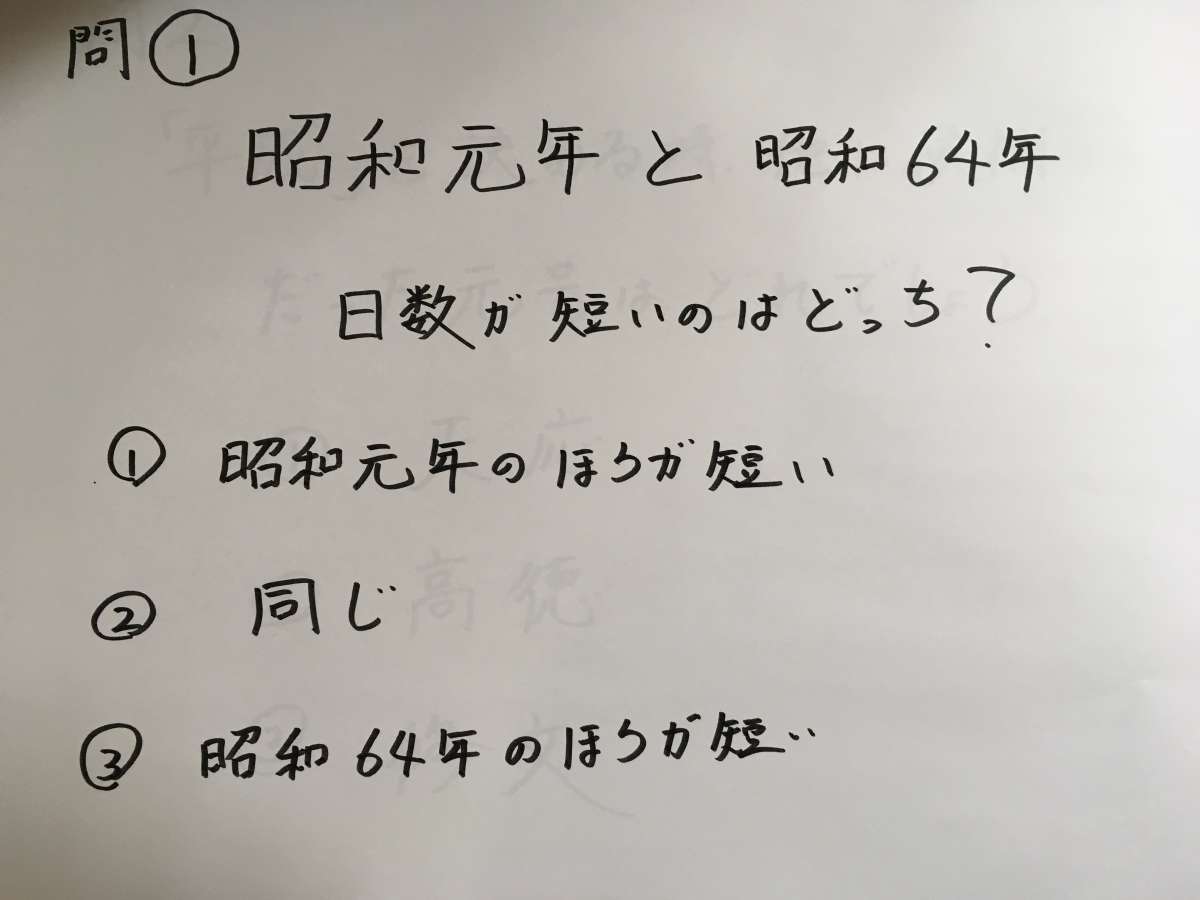 問①
昭和元年と昭和64年
日数が短いのはどっち?
① 昭和元年のほうが短い
② 同じ
③ 昭和64年のほうが短い